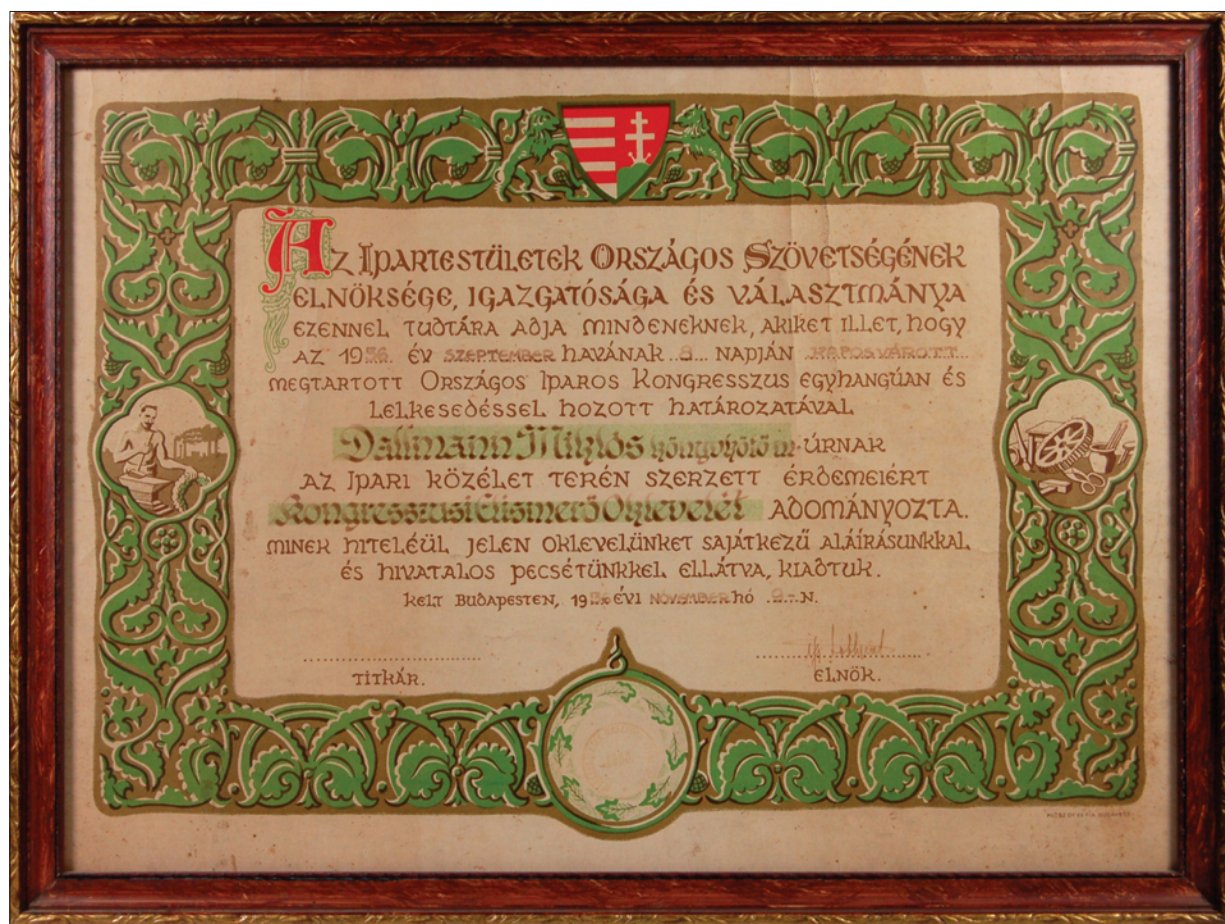 Az Ipartestületek Országos Szövetségének
elnöksége, igazgatósága és választmánya
ezennel tudtára adja mindeneknek, akiket illet, hogy
az 1936. év szeptember havának 8. napján Kaposvárott
megtartott Országos Iparos Kongresszus egyhangúan és
lelkesedéssel hozott határozatával
Dallmann Miklós könyvkötő m.-úrnak
az ipari közélet terén szerzett érdemeiért
Kongresszusi Elismerő Oklevelét adományozta.
minek hiteléül jelen oklevelünket sajátkezű aláírásunkkal
és hivatalos pecsétünkkel ellátva, kiadtuk.
kelt Budapesten, 1936 évi november hó 9-n.
titkár.
elnök.